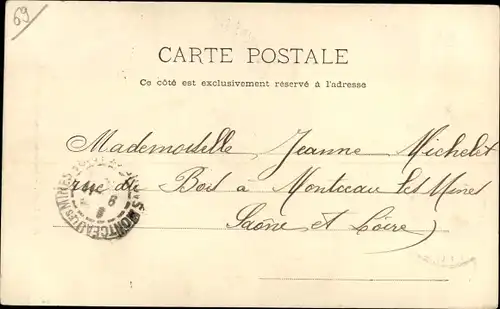 69
CARTE POSTALE
Ce côté est exclusivement réservé à l'adresse
Mademoiselle Jeanne Michelet
rue du Bois à Montceau les Mines
Saône et Loire)
MONTCEAU LES MINES